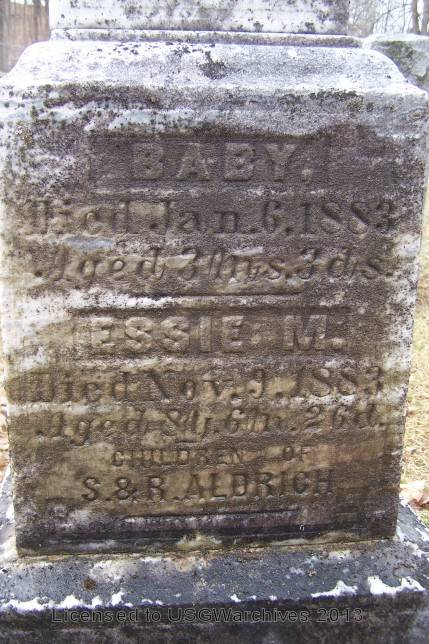 BABY,
Died Jan. 6. 1883
Aged 3 ms. 3 ds.
ESSIE M.
Died Nov. 9. 1883
Aged 8 y. 6 m. 26 d.
CHILDREN OF
S. & R. ALDRICH
Licensed to USGWarchives 2013